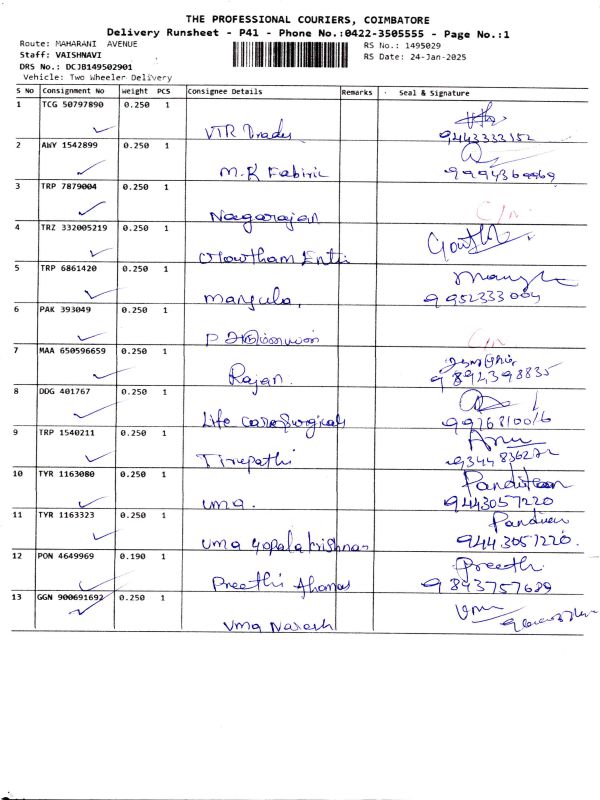 THE PROFESSIONAL COURIERS, COIMBATORE
Delivery Runsheet - P41 - Phone No.:0422-3505555 - Page No.:1
Route: MAHARANI AVENUE RS No.: 1495029
Staff: VAISHNAVI RS Date: 24-Jan-2025
DRS No.: DCJB149502901
Vehicle: Two Wheeler Delivery
S No Consignment No Weight PCS Consignee Details Remarks Seal & Signature
1 TCG 50797890 0.250 1
VTR Trades 9443333152
2 AWY 1542899 0.250 1
M.K Fabiric
3 TRP 7879004 0.250 1
Nagarajan C/n
4 TRZ 332005219 0.250 1
Gowtham Gowtham
5 TRP 6861420 0.250 1
Manjula, 9952333004
6 PAK 393049 0.250 1
P C/n
7 MAA 650596659 0.250 1
Rajan. 9894398835
8 DDG 401767 0.250 1
Life care Surgicals
9 TRP 1540211 0.250 1 Anu
Tirupathi
10 TYR 1163080 0.250 1
uma. 9443051220
11 TYR 1163323 0.250 1
uma gopalakrishnan 9443051220.
12 PON 4649969 0.190 1 Preethi
Preethi Thomas 9843757689
13 GGN 900691692 0.250 1 Uma
Uma Naresh